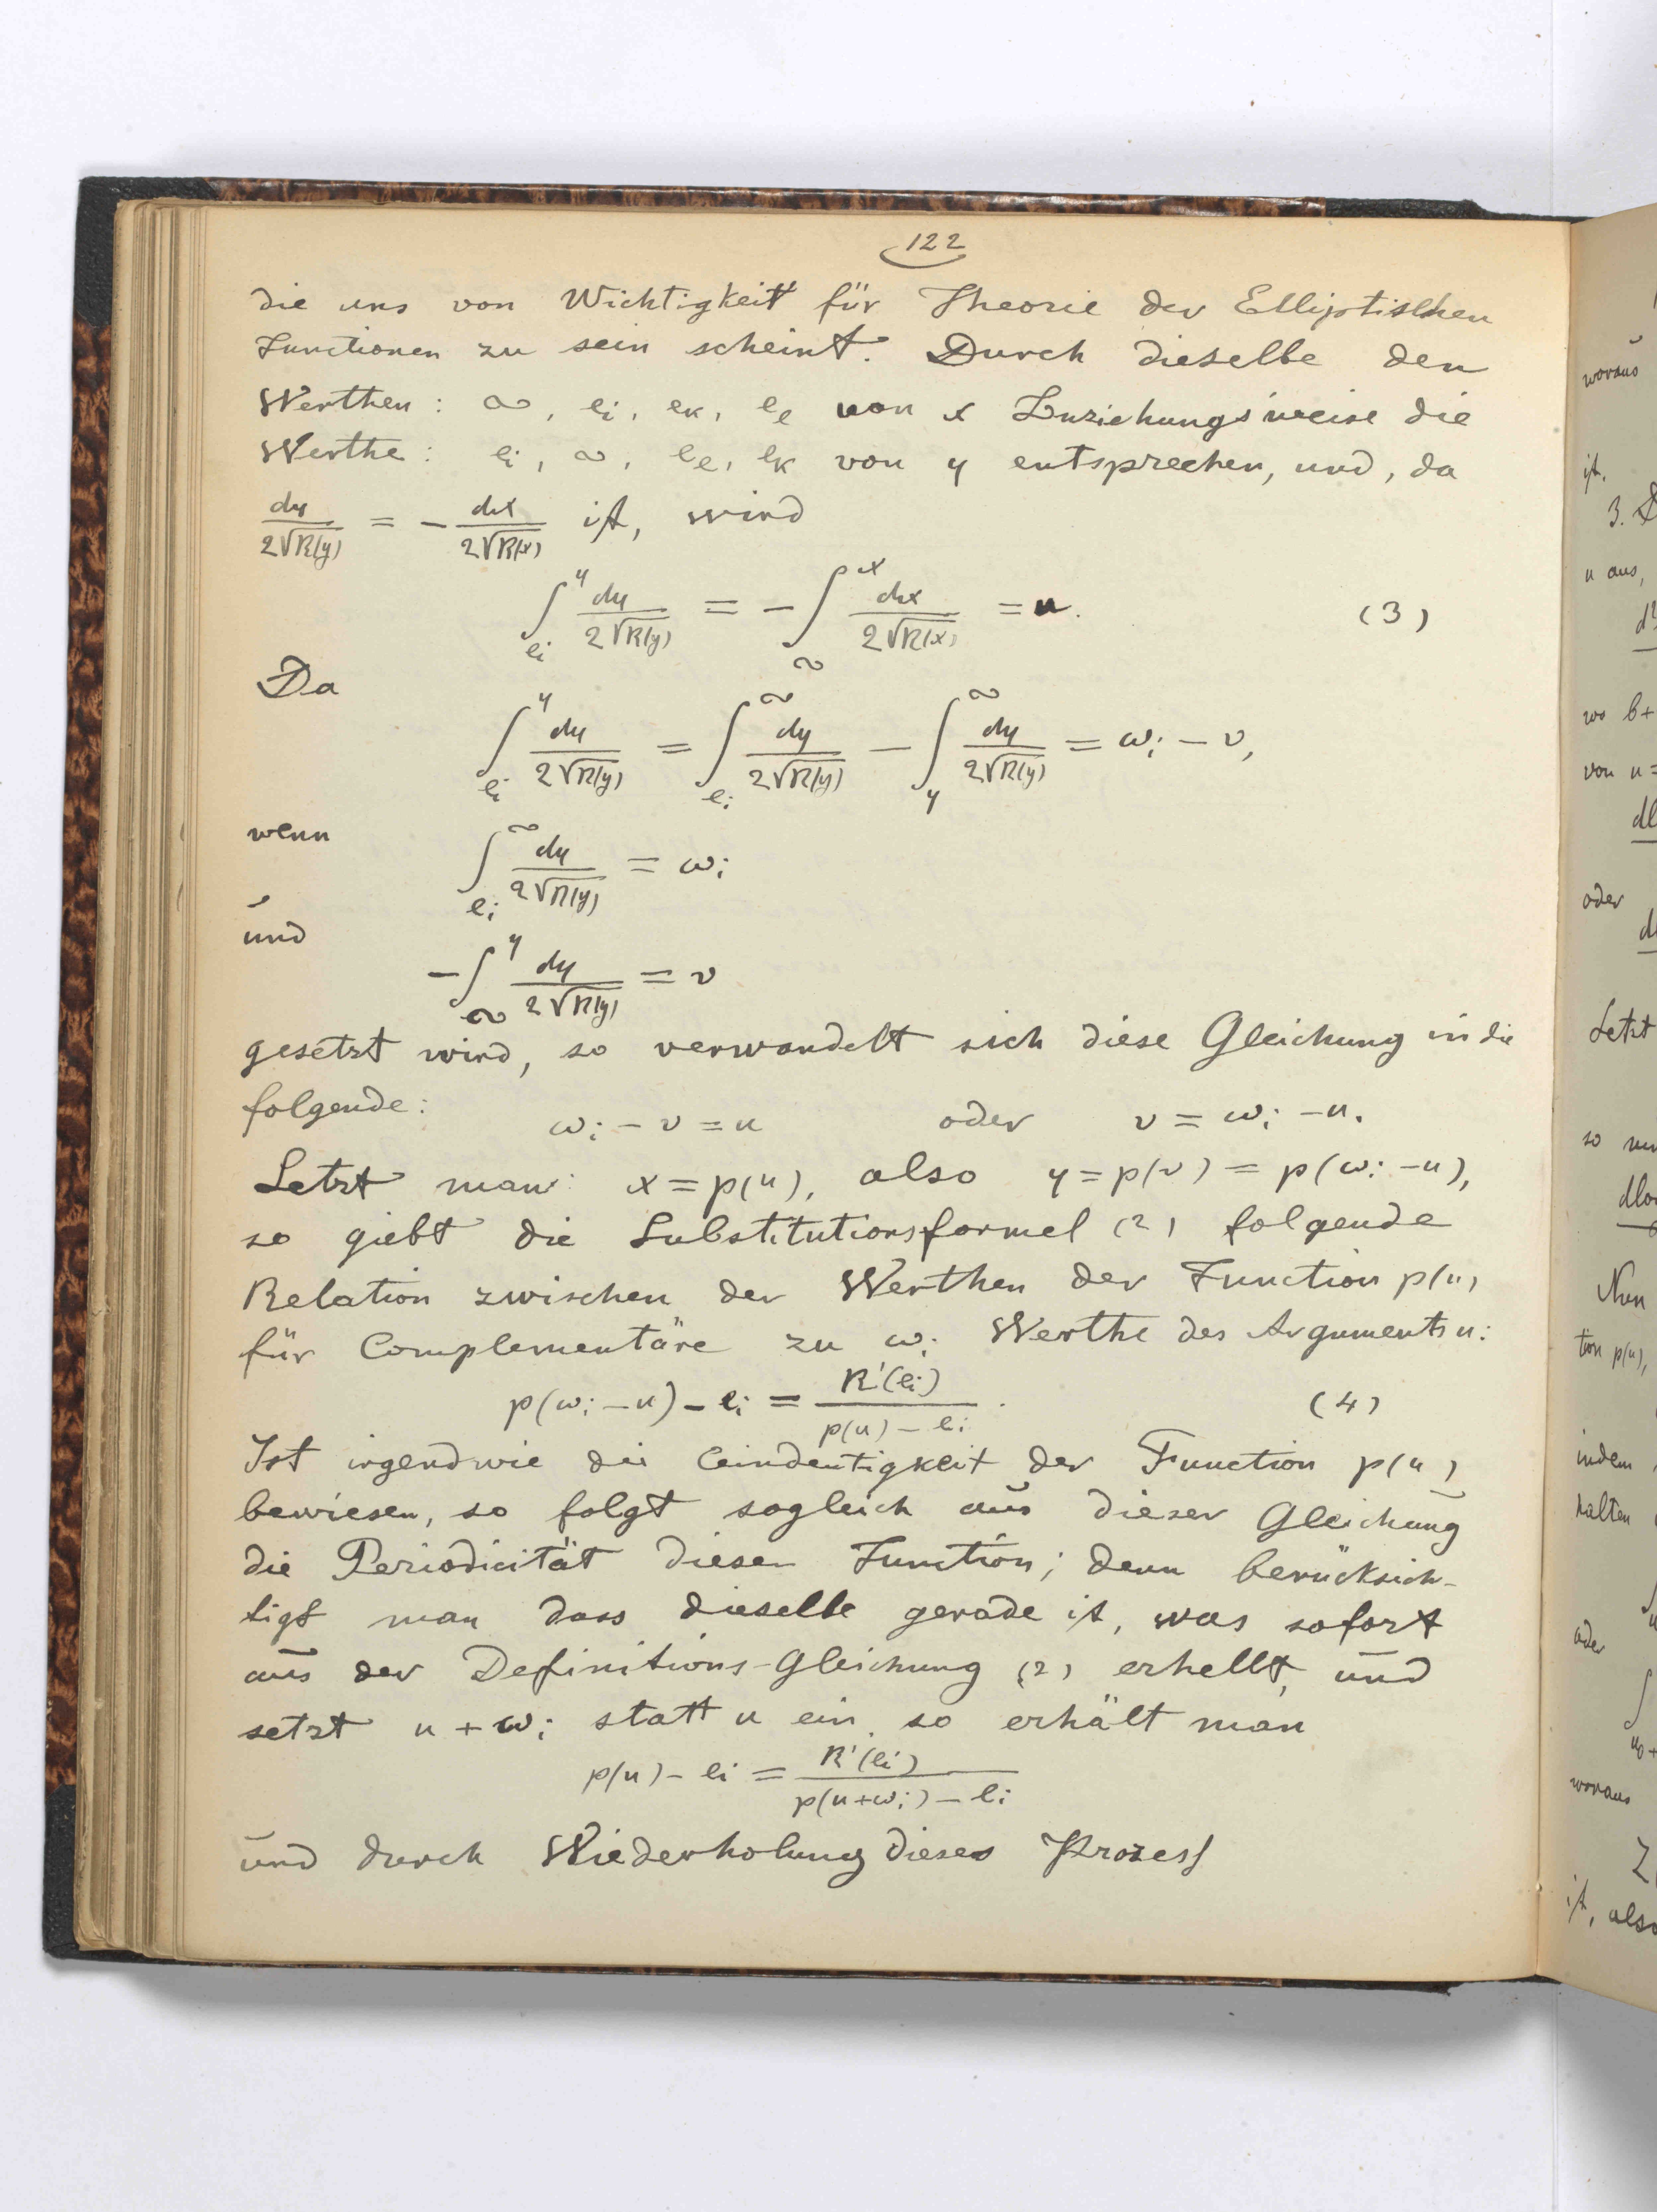 122
die uns von Wichtigkeit für Theorie der Elliptischen
Functionen zu sein scheint. Durch dieselbe den
Werthen: ∞, e_i, e_k, e_l von x beziehungsweise die
Werthe: e_i, ∞, e_l, e_k von y entsprechen, und, da
dy/2√R(y) = - dx/2√R(x) ist, wird
∫_{e_i}^{y} dy/2√R(y) = - ∫_{∞}^{x} dx/2√R(x) = u. (3)
Da
∫_{e_i}^{y} dy/2√R(y) = ∫_{e_i}^{∞} dy/2√R(y) - ∫_{y}^{∞} dy/2√R(y) = ω_i - v,
wenn
∫_{e_i}^{∞} dy/2√R(y) = ω_i
und
- ∫_{∞}^{y} dy/2√R(y) = v
gesetzt wird, so verwandelt sich diese Gleichung in die
folgende:
ω_i - v = u oder v = ω_i - u.
Setzt man: x = p(u), also y = p(v) = p(ω_i - u),
so giebt die Substitutionsformel (2) folgende
Relation zwischen der Werthen der Function p(u)
für Complementäre zu ω_i Werthe des Arguments u:
p(ω_i - u) - e_i = R'(e_i)/(p(u) - e_i). (4)
Ist irgendwie die Eindeutigkeit der Function p(u)
bewiesen, so folgt sogleich aus dieser Gleichung
die Periodicität dieser Function; denn berücksich-
tigt man dass dieselbe gerade ist, was sofort
aus der Definitions-Gleichung (2) erhellt, und
setzt u + ω_i statt u ein, so erhält man
p(u) - e_i = R'(e_i)/(p(u+ω_i) - e_i)
und durch Wiederholung dieses Prozess
woraus
ist.
3. D
u aus,
wo b+
von u=
oder
Setzt
Nun
tion p(u),
indem
halten
oder
woraus
ist, also